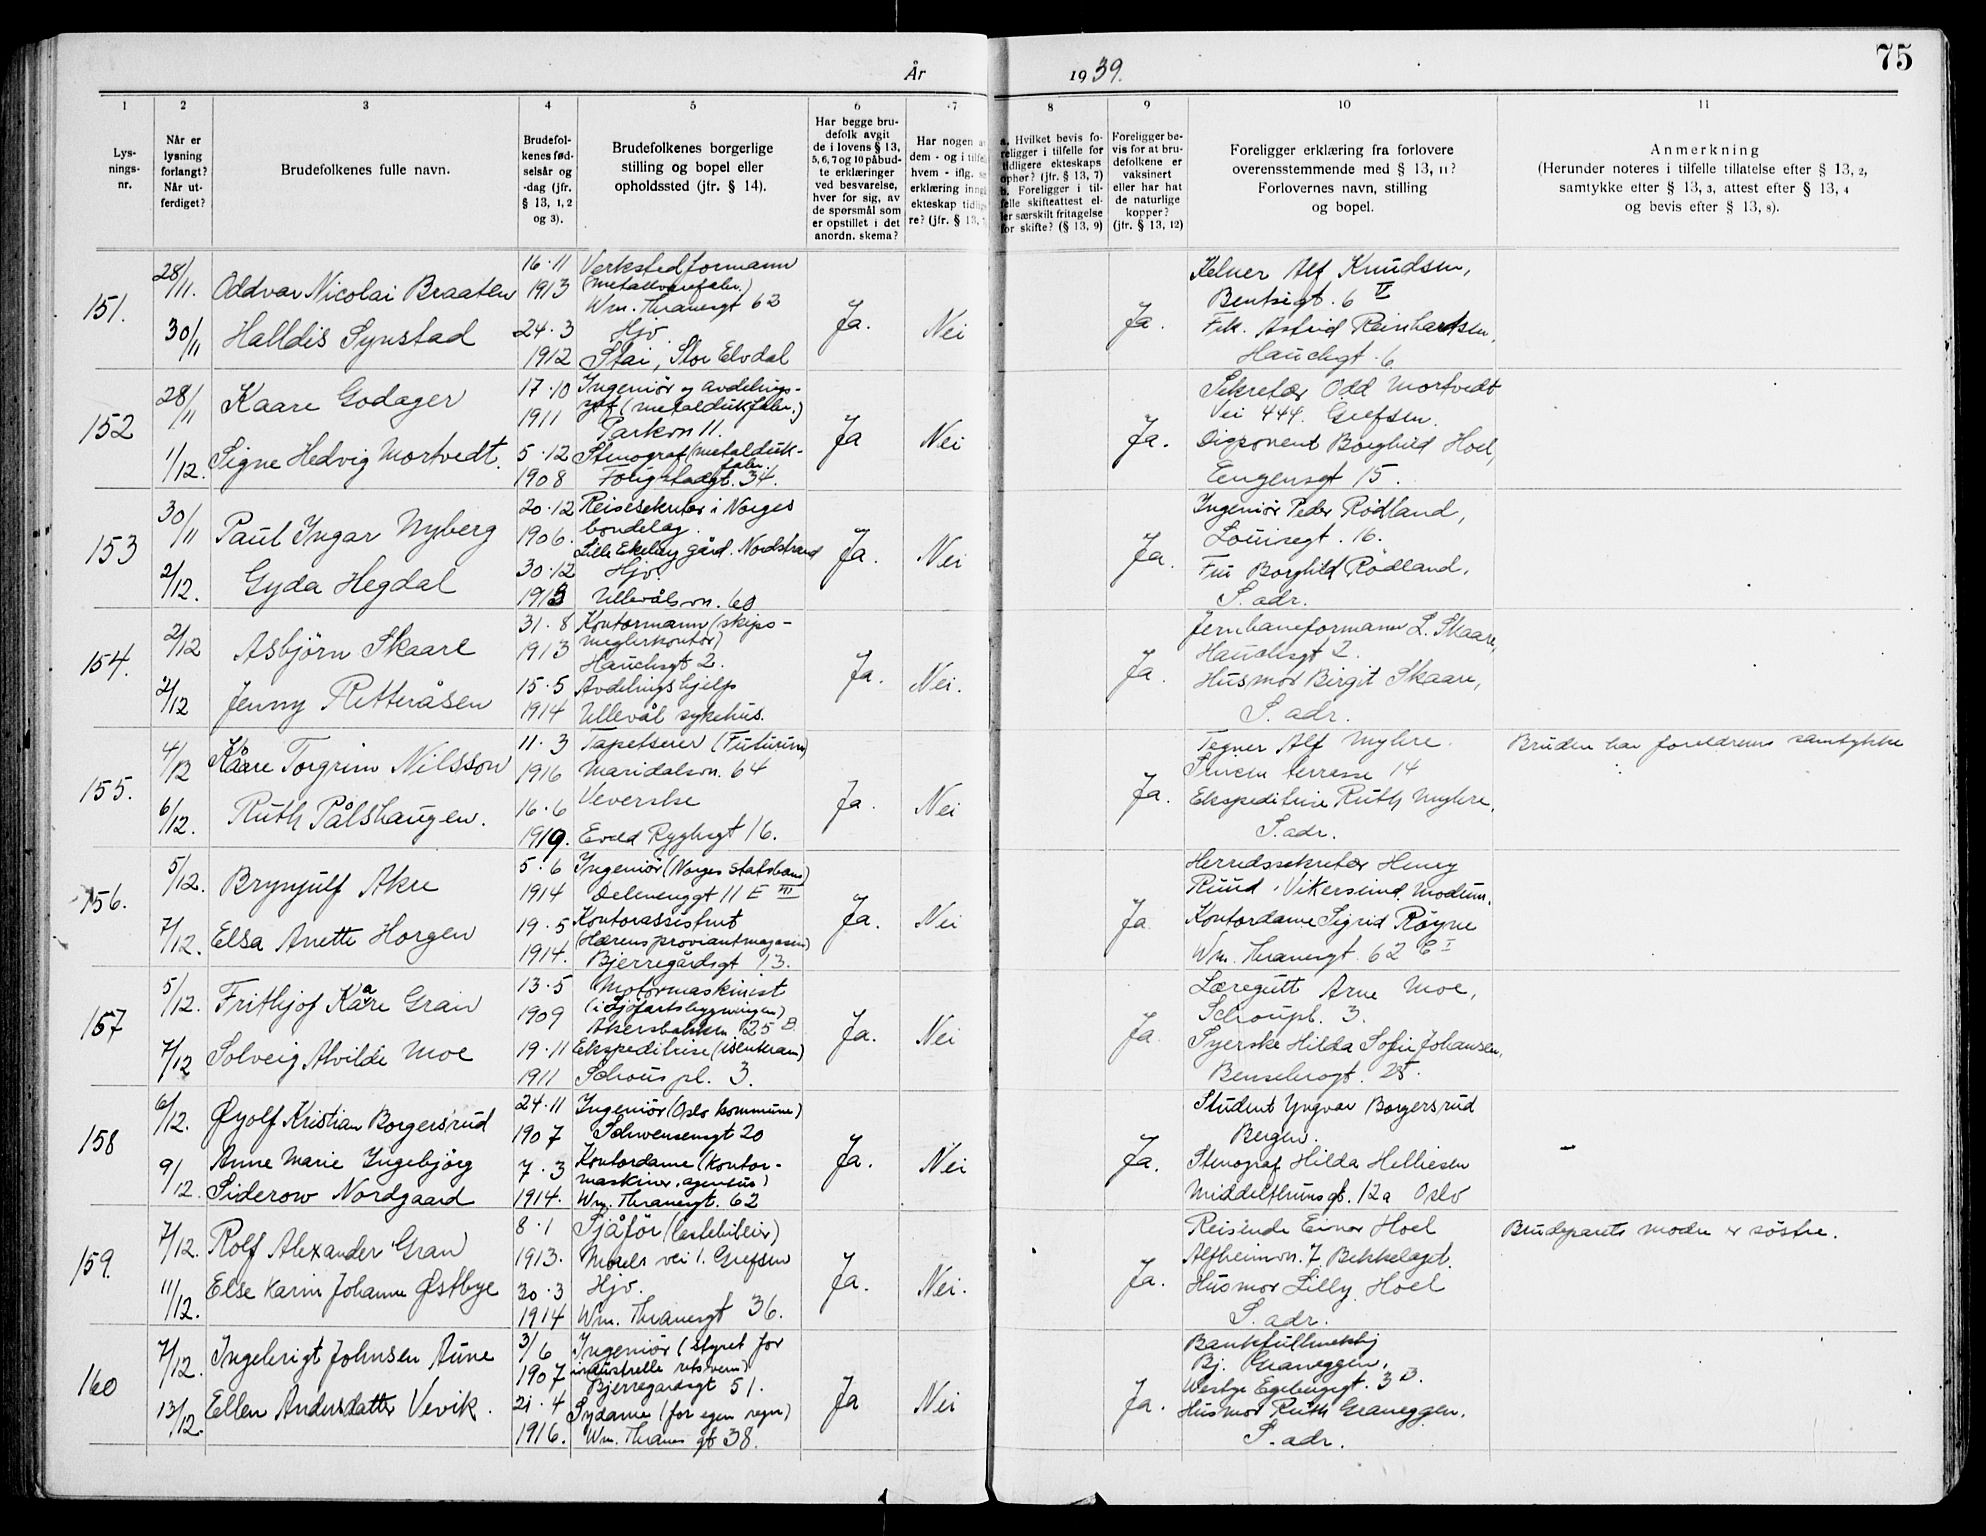 År 1939.
75
1 2 3 4 5 6 7 8 9 10 11
Lysnings-
nr.
Når er
lysning
forlangt?
Når ut-
ferdiget?
Brudefolkenes fulle navn.
Brudefol-
kenes fød-
selsår og
-dag (jfr.
§ 13, 1, 2
og 3).
Brudefolkenes borgerlige
stilling og bopel eller
opholdssted (jfr. § 14).
Har begge bru-
defolk avgit
de i lovens § 13,
5, 6, 7 og 10 påbud-
te erklæringer
ved besvarelse,
hver for sig, av
de spørsmål som
er opstillet i det
anordn. skema?
Har nogen av
dem - og i tilfelle
hvem - iflg.
erklæring inngå
ekteskap tidlig
re? (jfr. § 13,
a. Hvilket bevis fo-
religger i tilfelle for
tidligere ekteskaps
ophør? (jfr. § 13, 7)
b. Foreligger i til-
felle skifteattest el-
ler særskilt fritagelse
for skifte? (§ 13, 9)
Foreligger be-
vis for at bru-
defolkene er
vaksinert
eller har hat
de naturlige
kopper?
(jfr. § 13, 12)
Foreligger erklæring fra forlovere
overensstemmende med § 13, 11?
Forlovernes navn, stilling
og bopel.
Anmerkning
(Herunder noteres i tilfelle tillatelse efter § 13, 2,
samtykke efter § 13, 3, attest efter § 13, 4
og bevis efter § 13, 8).
151.
28/11.
30/11
Oddvar Nicolai Braaten
Halldis Synstad
16.11
1913
24.3
1912
Verkstedformann
(metallvarefabr.)
Wm. Thranesgt 62
Hjv.
Stai, Stor Elvdal
Ja.
Nei
Ja.
Kelner Alf Knudsen,
Bentsegt. 6 IV
Frk. Astrid Reinhardsen,
Hauchsgt. 6
152
28/11
1/12.
Kaare Godager
Signe Hedvig Mortvedt.
17.10
1911
5.12
1908
Ingeniør og avdelings-
sjef (metaldukfabr.)
Parkvn 11.
Stenograf (metalduk-
fabr.
Fougstadgt. 34.
Ja
Nei
Ja.
Sekretær Odd Mortvedt
Vei 444. Grefsen.
Disponent Borghild Hoel,
Eugensgt 15.
153
30/11
2/12.
Paul Ingar Nyberg
Gyda Hegdal
20.12
1906.
30.12
1913
Reisesekretær i Norges
bondelag.
Lille Ekeberg gård. Nordstrand
Hjv.
Ullevålsvn. 60
Ja.
Nei
Ja.
Ingeniør Peder Rødland,
Louisegt. 16.
Fru Borghild Rødland,
S. adr.
154.
2/12
2/12
Asbjørn Skaare
Jenny Retteråsen
31.8
1913
15.5
1914
Kontormann (skips-
meglerkontor)
Hauchsgt 2.
Avdelingshjelp
Ullevål sykehus.
Ja.
Nei.
Ja.
Jernbaneformann L. Skaare,
Hauchsgt 2.
Husmor Birgit Skaare,
S. adr.
155.
4/12
6/12.
Kåare Torgrim Nilsson
Ruth Pålshaugen.
11.3
1916
16.6
1919.
Tapetserer (Futurum)
Maridalsvn. 64
Veverske
Evald Ryghsgt 16.
Ja.
Nei
Ja.
Tegner Alf Myhre.
Sinsen terrasse 14
Ekspeditrise Ruth Myhre,
S. adr.
Bruden har foreldrenes samtykke
156.
5/12.
7/12.
Brynjulf Akre
Elsa Anette Horgen
5.6
1914
19.5
1914.
Ingeniør (Norges Statsbaner)
Delenenggt 11 E III
Kontorassistent
(Hærens proviantmagasin)
Bjerregårdsgt 13.
Ja.
Nei
Ja
Herredssekretær Henry
Ruud, Vikersund, Modum.
Kontordame Sigrid Røyne
Wm. Thranesgt. 62 C I
157
5/12.
7/12
Frithjof Kaare Gran
Solveig Alvilde Moe
13.5
1909
19.11
1911
Motormaskinist
(i Sjøfartsbygningen)
Akersbakken 25 B
Ekspeditrise (isenkram)
Schous pl. 3.
Ja.
Nei
Ja
Læregutt Arne Moe,
Schouspl. 3.
Syerske Hilda Sofie Johansen,
Bensebrogt. 25.
158
6/12.
9/12.
Øyolf Kristian Borgersrud
Anne Marie Ingebjørg
Siderow Nordgaard
24.11
1907
7.3
1914.
Ingeniør (Oslo kommune)
Schwensensgt 20
Kontordame (kontor-
maskiner, agentur)
Wm. Thranesgt. 62
Ja.
Nei
Ja.
Student Yngvar Borgersrud
Bergen.
Stenograf Hilda Helliesen
Middelthunsgt. 12a Oslo
–
159.
7/12.
11/12.
Rolf Alexander Gran
Else Karin Johanne Østbye
8.1
1913.
30.3
1914
Sjåför (lastebileier)
Morels vei 1. Grefsen
Hjv.
Wm. Thranesgt 36.
Ja.
Nei.
Ja.
Reisende Einar Hoel
Alfheimvn. 7 Bekkelaget.
Husmor Lilly Hoel
S. adr.
Brudeparets mødre er söstre.
160
7/12.
13/12.
Ingebrigt Johnsen Aune
Ellen Andersdatter Vevik.
3/6
1907
21.4
1916.
Ingeniør (styret for
industrielle rettsvern)
Bjerregardsgt 51.
Sydame (for egen regn)
Wm. Thranes gt 38.
Ja
Nei
Ja.
Bankfullmektig
Bj. Graneggen,
Westye Egebergsgt. 3 B.
Husmor Ruth Graneggen.
S. adr.